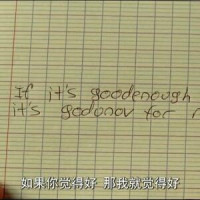 If it's goodenough
it's godonov for
如果你觉得好 那我就觉得好